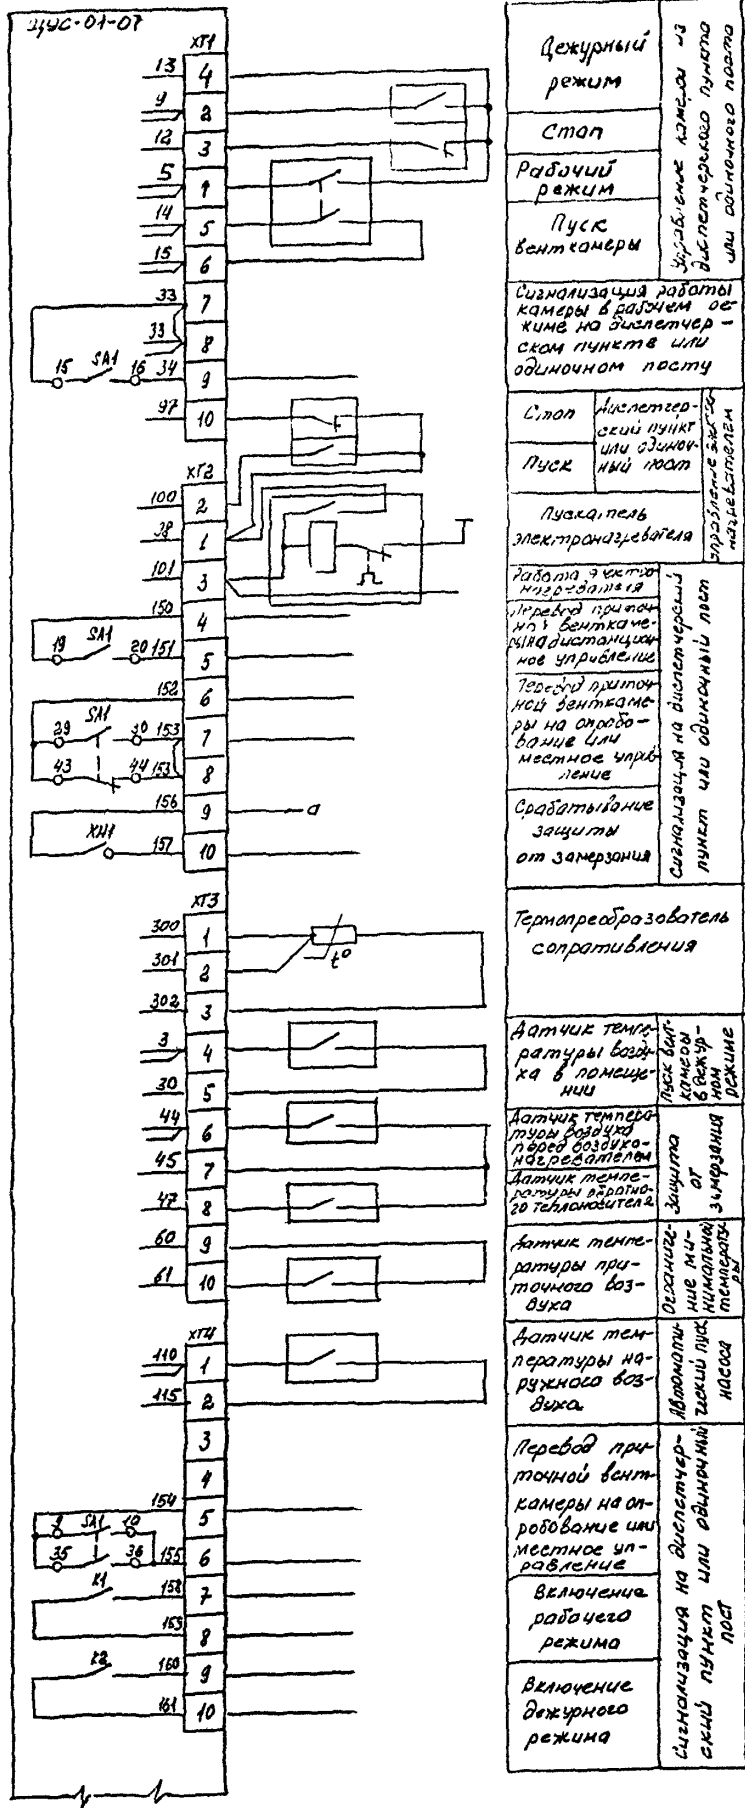 ЩУС-01-07
ХТ1
13 4
9 2
12 3
5 1
14 5
15 6
33 7
33 8
15 SA1 16 34 9
97 10
ХТ2
100 2
98 1
101 3
150 4
19 SA1 20 151 5
152 6
29 SA1 30 153 7
43 44 153 8
156 9 а
КН1 157 10
ХТ3
300 1
301 2
t°
302 3
3 4
30 5
44 6
45 7
47 8
60 9
61 10
ХТ4
110 1
115 2
3
4
154 5
9 SA1 10
35 36 155 6
К1 158 7
159 8
К2 160 9
161 10
Дежурный
режим
Стоп
Рабочий
режим
Пуск
венткамеры
Управление камерой из
диспетчерского пункта
или одиночного поста
Сигнализация работы
камеры в рабочем ре-
жиме на диспетчер-
ском пункте или
одиночном посту
Стоп
Пуск
Диспетчер-
ский пункт
или одиноч-
ный пост
Пускатель
электронагревателя
Управление электро-
нагревателем
Работа электро-
нагревателя
Перевод приточ-
ной венткаме-
ры на дистанцион-
ное управление
Перевод приточ-
ной венткаме-
ры на опробо-
вание или
местное управ-
ление
Срабатывание
защиты
от замерзания
Сигнализация на диспетчерский
пункт или одиночный пост
Термопреобразователь
сопративления
Датчик темпе-
ратуры возду-
ха в помеще-
нии
Пуск вент-
камеры
в дежур-
ном
режиме
Датчик темпера-
туры воздуха
перед воздухо-
нагревателем
Датчик темпе-
ратуры обратно-
го теплоносителя
Защита
от
замерзания
Датчик темпе-
ратуры при-
точного воз-
духа
Ограниче-
ние ми-
нимальной
температу-
ры
Датчик тем-
пературы на-
ружного воз-
духа
Автомати-
ческий пуск
насоса
Перевод при-
точной вент-
камеры на оп-
робование или
местное уп-
равление
Включение
рабочего
режима
Включение
дежурного
режима
Сигнализация на диспетчер-
ский пункт или одиночный
пост